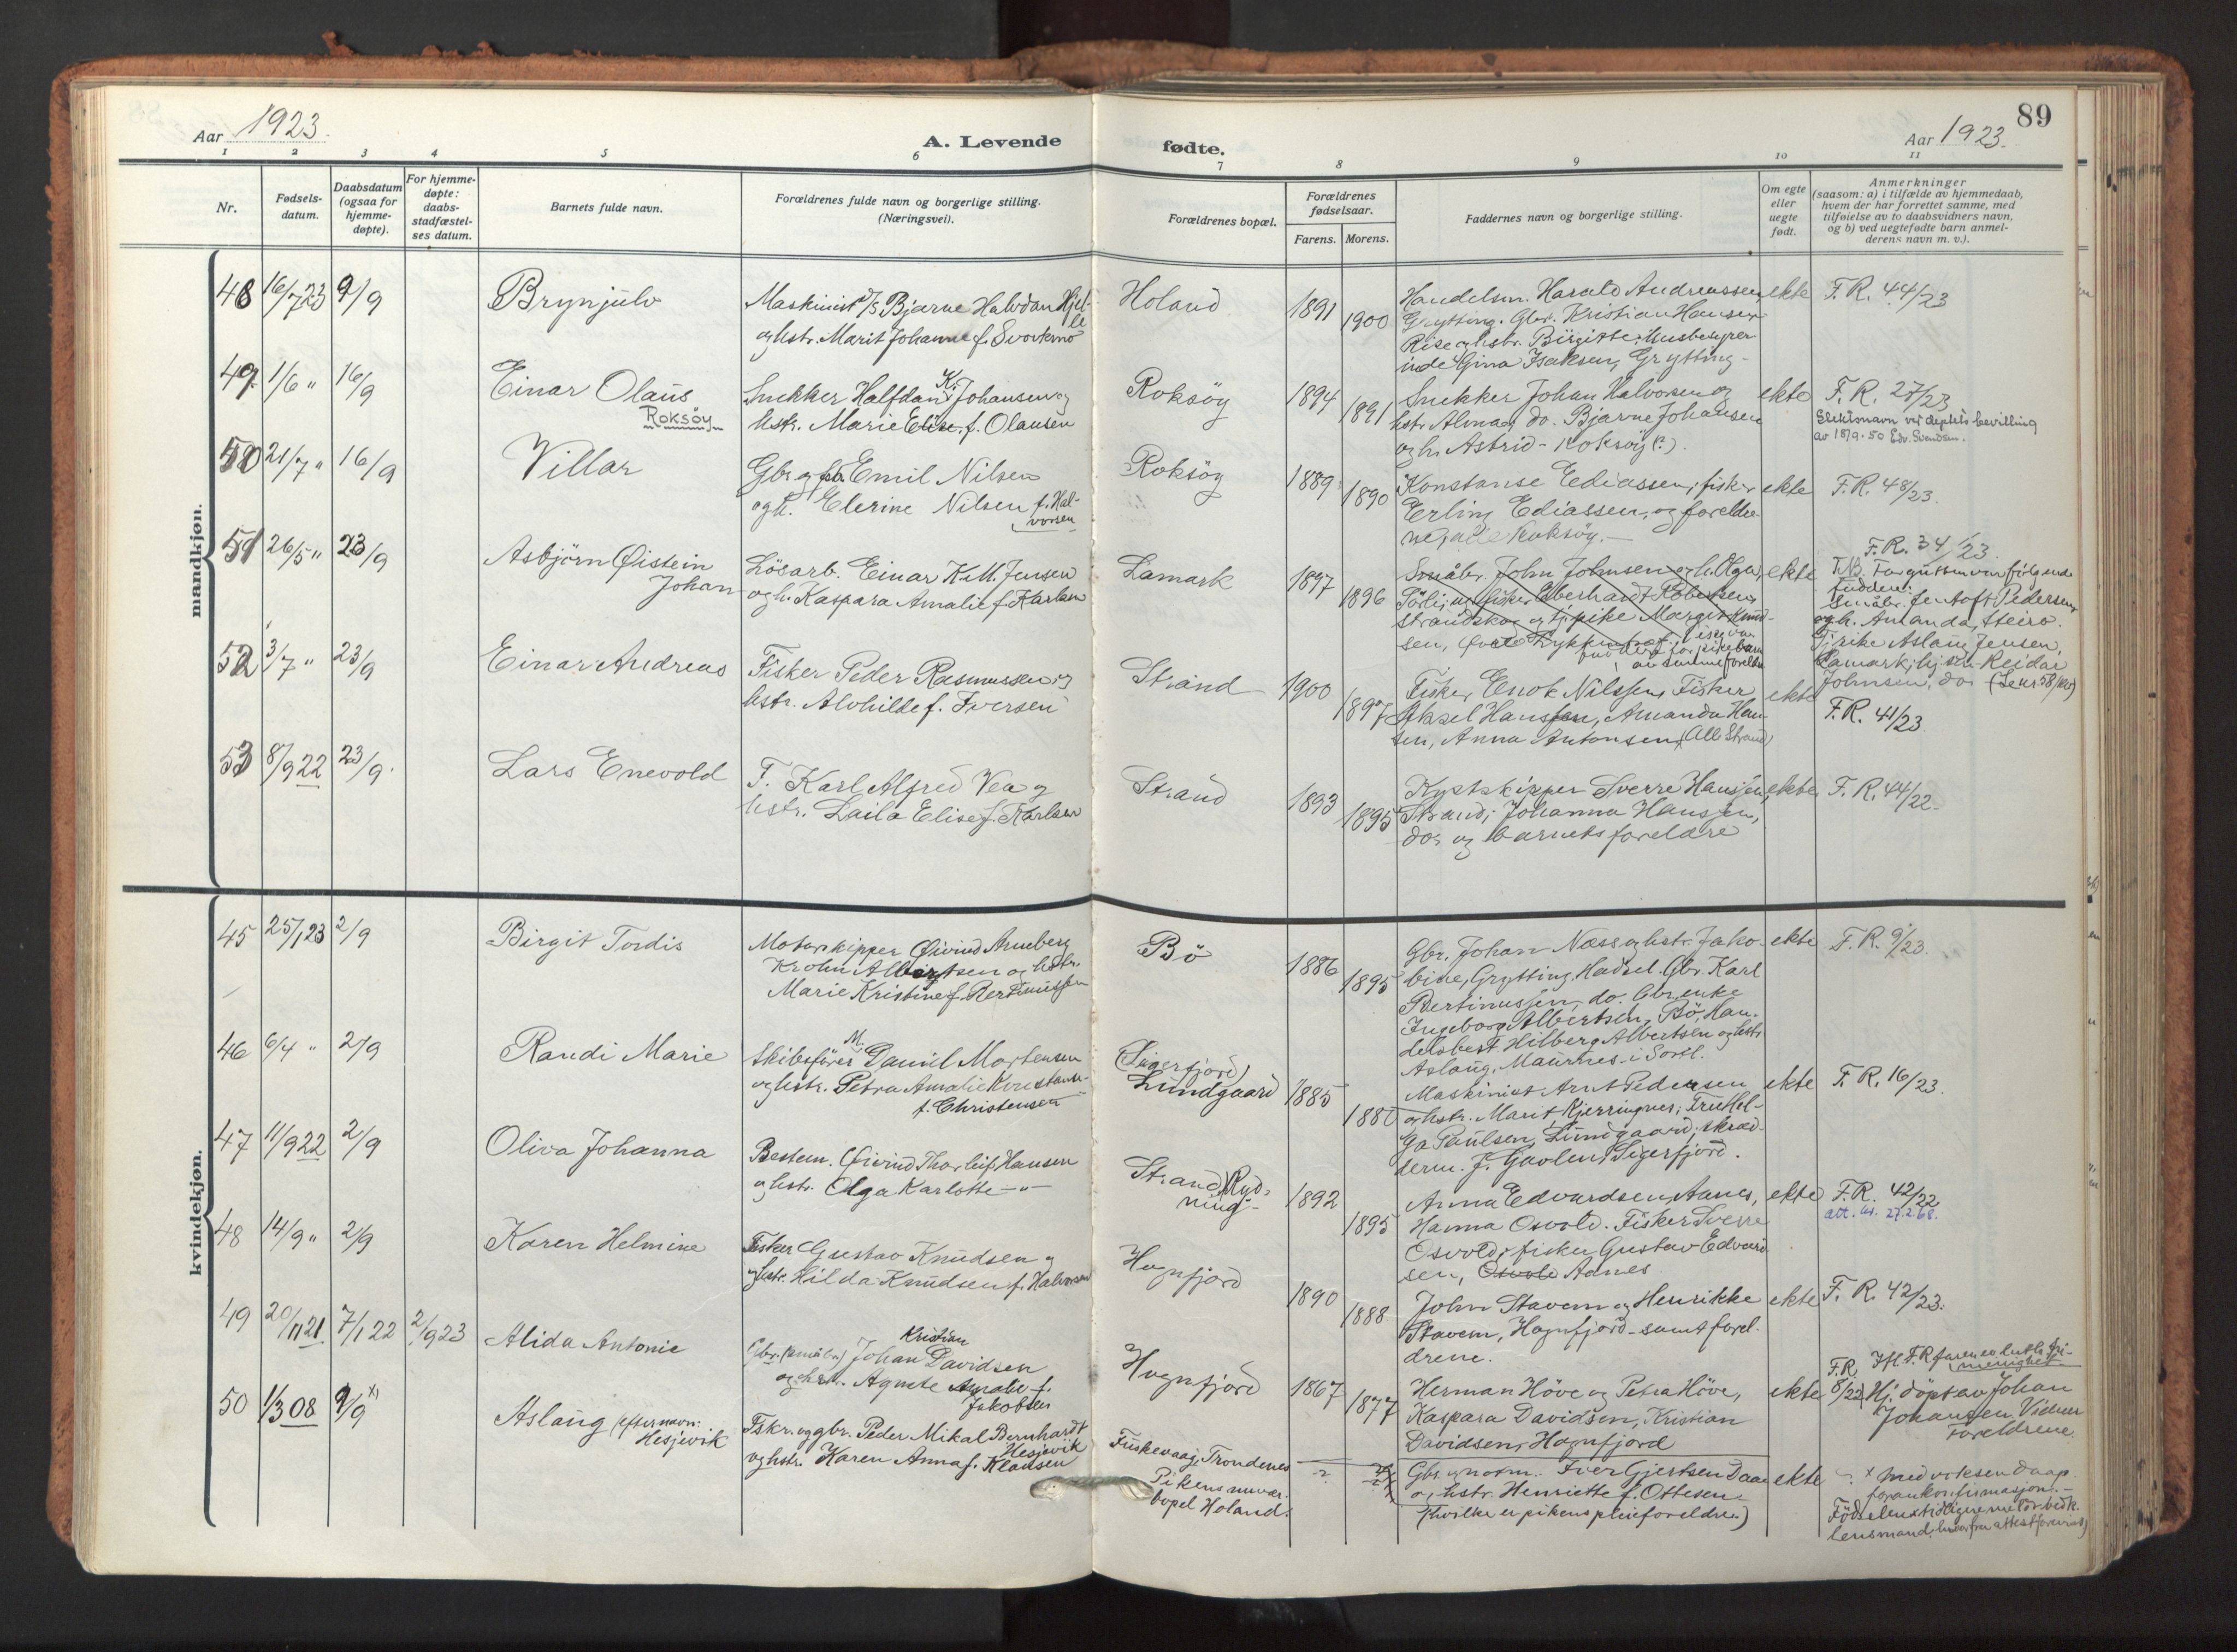 Aar 1923.
A. Levende
fødte.
Aar 1923.
89
1 2 3 4 5 6 7 8 9 10 11
Nr.
Fødsels-
datum.
Daabsdatum
(ogsaa for
hjemme-
døpte).
For hjemme-
døpte:
daabs-
stadfæstel-
ses datum.
Barnets fulde navn.
Forældrenes fulde navn og borgerlige stilling.
(Næringsvei).
Forældrenes bopæl.
Forældrenes
fødselsaar.
Farens. Morens.
Faddernes navn og borgerlige stilling.
Om egte
eller
uegte
født.
Anmerkninger
(saasom: a) i tilfælde av hjemmedaab,
hvem der har forrettet samme, med
tilføielse av to daabsvidners navn,
og b) ved uegtefødte barn anmel-
derens navn m. v.).
mandkjøn.
48 16/7 23 9/9 Brynjulv
Maskinist D/S Bjarne Halvdan Hjel-
le
og hstr. Marit Johanne f. Svorkmo
Holand 1891 1900
Handelsm. Harald Andreassen
Grytting. Gbr. Kristian Hansen
Rise og hstr. Birgitte; Husbestyrer-
inde Gina Isaksen, Grytting
ekte F.R. 44/23
49. 1/6 " 16/9 Einar Olaus
Roksöy
Snekker Halfdan K. Johansen og
hstr. Marie Elise f. Olausen
Roksöy 1894 1891
Snekker Johan Halvorsen og
hstr. Alma, do. Bjarne Johansen
og h. Astrid - Roksöy (?).
ekte F.R. 27/23
Slektsnavn ved deptets bevilling
av 18/9-50 Edv. Svendsen.
50 21/7 " 16/9 Villar
Gbr og fsk Emil Nilsen
og h. Elerine Nilsen f. Hal-
vorsen
Roksöy 1889 1890
Konstanse Ediassen; fisker
Erling Ediassen, og foreldre-
ne, alle Roksöy.
ekte F.R. 48/23.
51 26/5 " 23/9 Asbjörn Øistein
Johan
Lösarb. Einar K.M. Jensen
og h. Kaspara Amalie f. Karlsen
Lamark 1897 1896
Småbr. John Johnsen og h. Olga,
fisker Eberhardt Robertsen,
Strandskog og tj. pike Margit Knud-
sen,
faddere for pikebarn
av samme foreldre
ekte F.R. 34/23.
N.B. For gutten var følgende
faddere:
Småbr. Jentoft Pedersen
og h. Amanda, Steiro.
Tj. pike Aslaug Jensen,
Lamark, Reidar
Johnsen, do. (Se nr. 58/kv)
52 3/7 " 23/9 Einar Andreas
Fisker Peder Rasmussen og
hstr. Alvhilde f. Iversen
Strand 1900 1897
Fisker Enok Nilssen, Fisker
Aksel Hanssen, Amanda Han-
sen, Anna Antonsen (Alle Strand)
ekte F.R. 41/23
53 8/9 22 23/9. Lars Enevold
F. Karl Alfred Vea og
hstr. Laila Elise f. Karlsen
Strand 1893 1895
Kystskipper Sverre Hanssen,
Strand; Johanna Hanssen,
do. og barnets foreldre
ekte F.R. 44/22.
kvindekjøn.
45 25/1 23 2/9 Birgit Tordis
Motorskipper Øivind Arneberg
Krohn Albertsen og hstr.
Marie Kristine f. Bertinussen
Bö 1886 1895
Gbr. Johan Næss og hstr. Jako-
bine, Grytting, Hadsel. Gbr. Karl
Bertinussen, do. Gbr. enke
Ingeborg Albertsen, Bö, Han-
delsbest. Hilberg Albertsen og hstr
Aslaug, Maurnes i Sortl.
ekte F.R. 9/23.
46 6/4 " 2/9 Randi Marie
Skibsfører Daniel M. Mortensen
og hstr. Petra Amalie Konstanse
f. Christensen
(Sigerfjord)
Lundgaard 1885 1880
Maskinist Arnt Pedersen
og hstr. Marit Kjerringnes; Fru Hel-
ga Paulsen, Lundgaard; skræd-
derm. J. Gaolen, Sigerfjord.
ekte F.R. 16/23.
47 11/9 22 2/9 Oliva Johanna
Bestem. Øivind Thorleif Hansen
og hstr. Olga Karlotte — " —
Strand, Ryd-
ning 1892 1895
Anna Edvardsen Aanes,
Hanna Osvold. Fisker Sverre
Osvold; fisker Gustav Edvard-
sen, Osvold Aanes.
ekte F.R. 42/22
att. 27.2.68.
48 14/9 " 2/9 Karen Helmine
Fisker Gustav Knudsen og
hstr. Hilda Knudsen f. Halvorsen
Hognfjord 1890 1888
John Stavem og Henrikke
Stavem, Hognfjord - samt forel-
drene.
ekte F.R. 42/23.
49 20/11 21. 7/1 22 2/9 23 Alida Antonie
Gbr. (småbr.) Johan Kristian Davidsen
og hstr. Agnete Amalie f.
Jakobsen
Hognfjord 1867 1877
Herman Höve og Petra Höve,
Kaspara Davidsen, Kristian
Davidsen, Hognfjord
ekte F.R. 8/22.
Hj. döpt av Johan
Johansen. Vidner
Foreldrene.
50 1/3 08 9/9 x) Aslaug (efternavn:
Hesjevik
Fskr. og gbr. Peder Mikal Bernhardt
Hesjevik
og hstr. Karen Anna f. Klausen
Fuskevaag, Trondenes
Pikens nuvær.
bopel Holand.
Gbr. og notm. Iver Gjertsen Daae
og hstr. Henriette f. Ottesen
(hvilke er pikens pleieforeldre.)
ekte x med voksendaap
foran konfirmasjon.